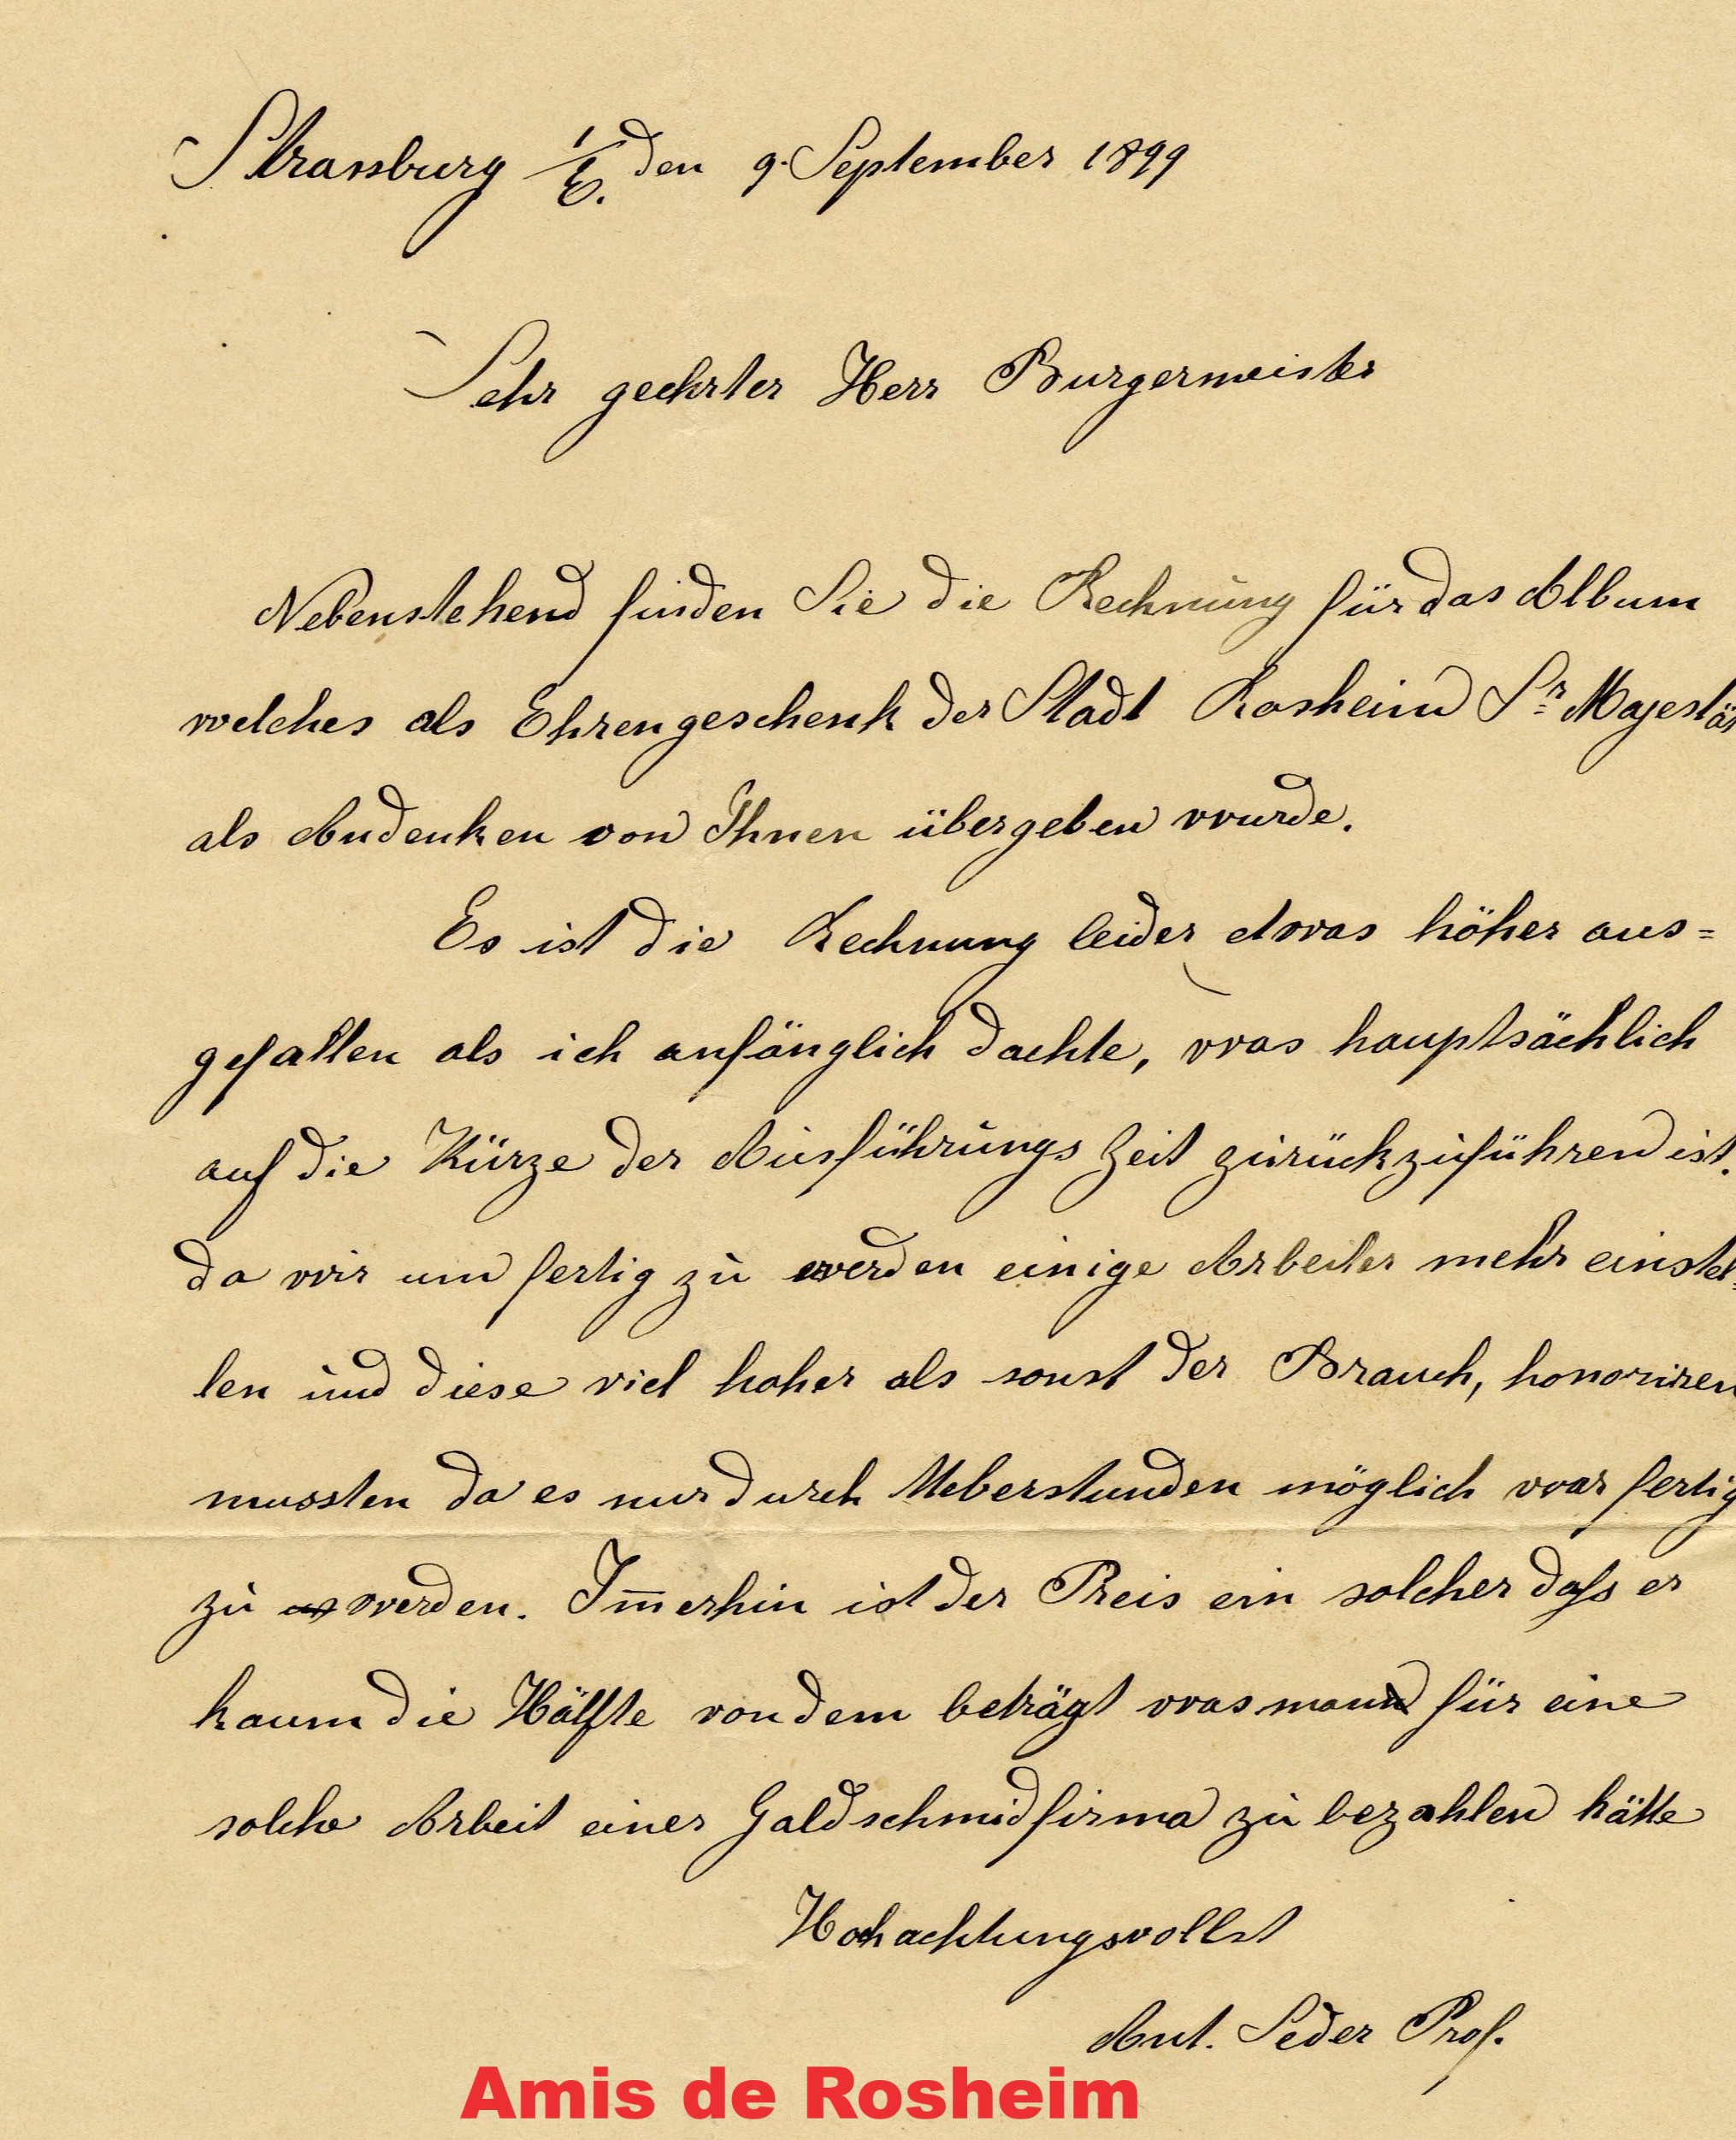 Strassburg i/E. den 9. September 1899
Sehr geehrter Herr Burgermeister
Nebenstehend finden Sie die Rechnung für das Album
welches als Ehrengeschenk der Stadt Rosheim Sr Majestät
als Andenken von Ihnen übergeben wurde.
Es ist die Rechnung leider etwas höher aus=
gefallen als ich anfänglich dachte, was hauptsächlich
auf die Kürze der Ausführungs Zeit zurückzuführen ist.
da wir um fertig zu werden einige Arbeiter mehr einstel=
len und diese viel hoher als sonst der Brauch, honoriren
mussten da es nur durch Ueberstunden möglich war fertig
zu werden. Im̅erhin ist der Preis ein solcher daſs er
kaum die Hälfte von dem beträgt was man für eine
solche Arbeit einer Goldschmidfirma zu bezahlen hätte
Hochachtungsvollst
Ant. Seder Prof.
Amis de Rosheim